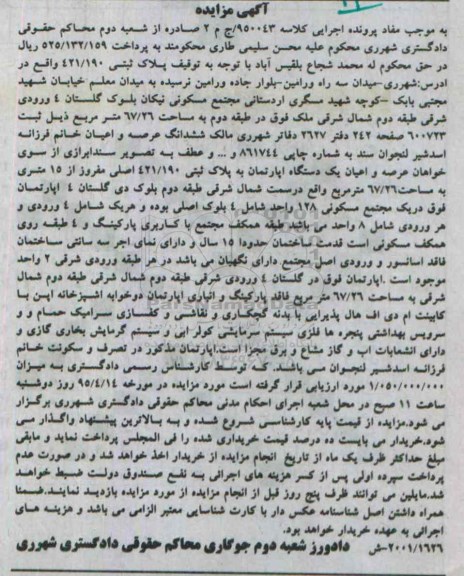 آگهی مزایده
به موجب مفاد پرونده اجرایی کلاسه ۹۵۰۰۴۳/ج م ۲ صادره از شعبه دوم محاکم حقوقی
دادگستری شهرری محکوم علیه محسن سلیمی طاری محکومند به پرداخت ۵۲۵/۱۳۲/۱۵۹ ریال
در حق محکوم له محمد شجاع بلقیس آباد با توجه به توقیف پلاک ثبتی ۴۲۱/۱۹۰ واقع در
ادرس:شهرری-میدان سه راه ورامین-بلوار جاده ورامین نرسیده به میدان معلم خیابان شهید
مجتبی بابک -کوچه شهید مسگری اردستانی مجتمع مسکونی نیکان بلوک گلستان ۴ ورودی
شرقی طبقه دوم شمال شرقی ملک فوق در طبقه دوم به مساحت ۶۷/۲۶ متر مربع ذیل ثبت
۶۰۰۷۲۳ صفحه ۲۴۲ دفتر ۲۶۲۷ دفاتر شهرری مالک ششدانگ عرصه و اعیان خانم فرزانه
اسدشیر لنجوان سند به شماره چاپی ۸۶۱۷۴۴ و ... و عطف به تصویر سندابرازی از سوی
خواهان عرصه و اعیان یک دستگاه اپارتمان به پلاک ثبتی ۴۲۱/۱۹۰ اصلی مفروز از ۱۵ متری
به مساحت۶۷/۲۶ مترمربع واقع درسمت شمال شرقی طبقه دوم بلوک دی گلستان ۴ اپارتمان
فوق دریک مجتمع مسکونی ۱۲۸ واحد شامل ۴ بلوک اصلی بوده و هریک شامل ۴ ورودی و
هر ورودی شامل ۸ واحد می باشد طبقه همکف مجتمع با کاربری پارکینگ و ۴ طبقه روی
همکف مسکونی است قدمت ساختمان حدودا ۱۵ سال و دارای نمای اجر سه سانتی ساختمان
فاقد اسانسور و ورودی اصل مجتمع دارای نگهبان می باشد در هر طبقه ورودی شرقی ۲ واحد
موجود است .اپارتمان فوق در گلستان ۴ ورودی شرقی طبقه دوم شمال شرقی طبقه دوم شمال
شرقی به مساحت ۶۷/۲۶ متر مربع فاقد پارکینگ و انباری اپارتمان دوخوابه اشپزخانه اپن با
کابینت ام دی اف هال پذیرایی با بدنه گچکاری و نقاشی و کفسازی سرامیک حمام و
سرویس بهداشتی پنجره ها فلزی سیستم سرمایشی کولر ابی و سیستم گرمایش بخاری گازی و
دارای انشعابات اب و گاز مشاع و برق مجزا است.اپارتمان مذکور در تصرف و سکونت خانم
فرزانه اسدشیر لنجوان می باشد. که توسط کارشناس رسمی دادگستری به میزان
۱/۰۵۰/۰۰۰/۰۰۰ مورد ارزیابی قرار گرفته است مورد مزایده در مورخه ۹۵/۴/۱۴ روز دوشنبه
ساعت ۱۱ صبح در محل شعبه اجرای احکام مدنی محاکم حقوقی دادگستری شهرری برگزار
می شود.مزایده از قیمت پایه کارشناسی شروع شده و به بالاترین پیشنهاد واگذار می
شود.خریدار می بایست ده درصد قیمت خریداری شده را فی المجلس پرداخت نماید و مابقی
مبلغ حداکثر ظرف یک ماه از تاریخ انجام مزایده از خریدار اخذ خواهد شد و در صورت عدم
پرداخت سپرده اولی پس از کسر هزینه های اجرائی به نفع صندوق دولت ضبط خواهد
شد.مایلین می توانند ظرف پنج روز قبل از انجام مزایده از مورد مزایده بازدید نمایند.ضمنا
همراه داشتن اصل شناسنامه عکس دار با کارت شناسایی معتبر الزامی می باشد و هزینه های
اجرائی به عهده خریدار خواهد بود.
۲۰۰۱/۱۶۲۶-ش دادورز شعبه دوم جوگاری محاکم حقوقی دادگستری شهرری